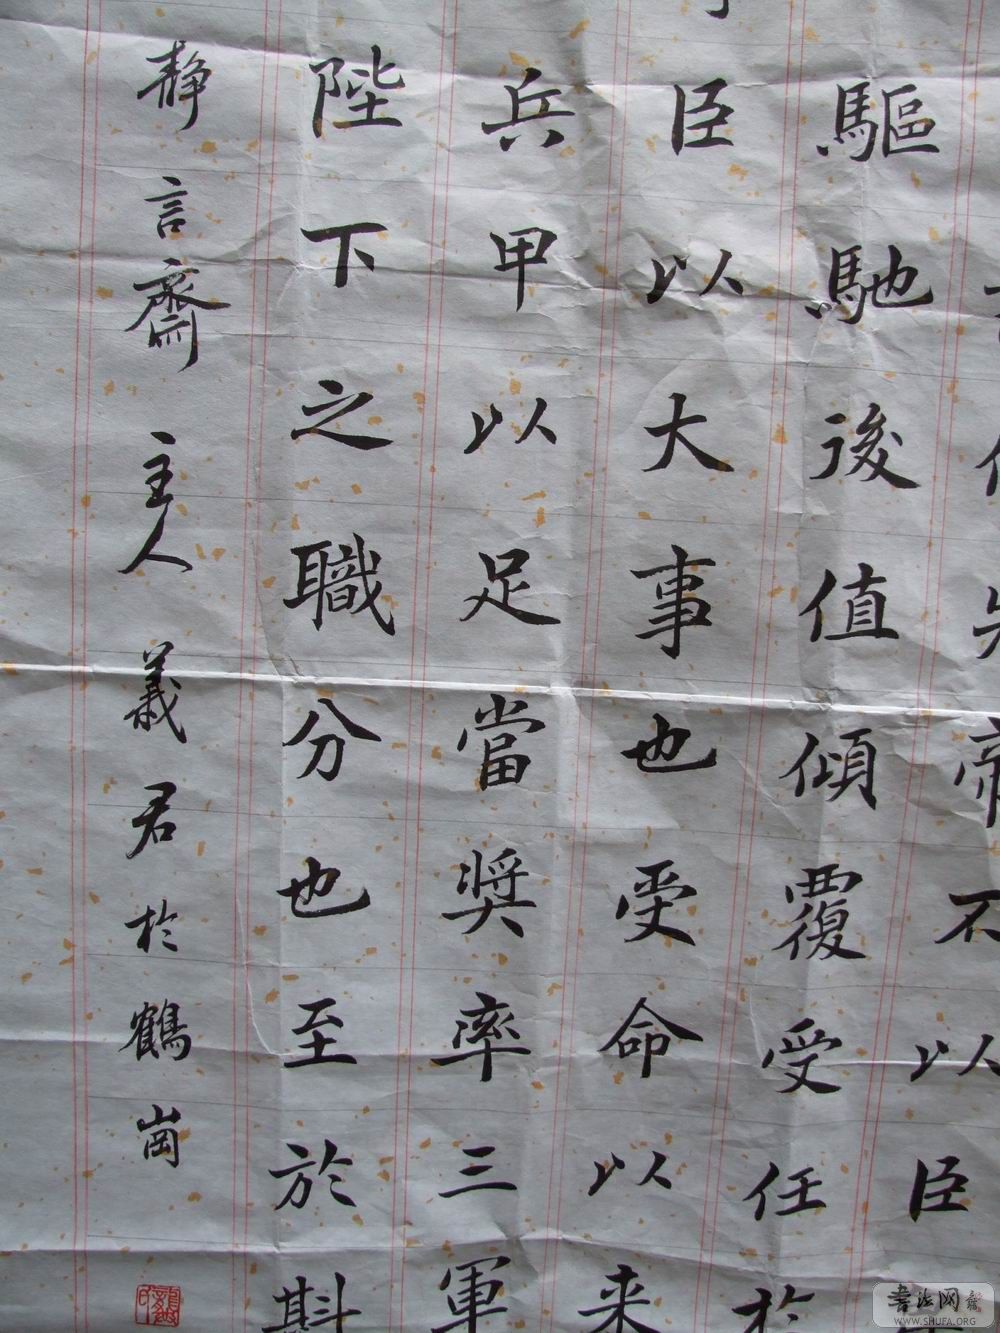 不以臣
驅馳後值傾覆受任於
臣以大事也受命以来
兵甲以足當奬率三軍
陛下之職分也至於斟
靜言齋主人義君於鶴崗
書法网
WWW.SHUFA.ORG